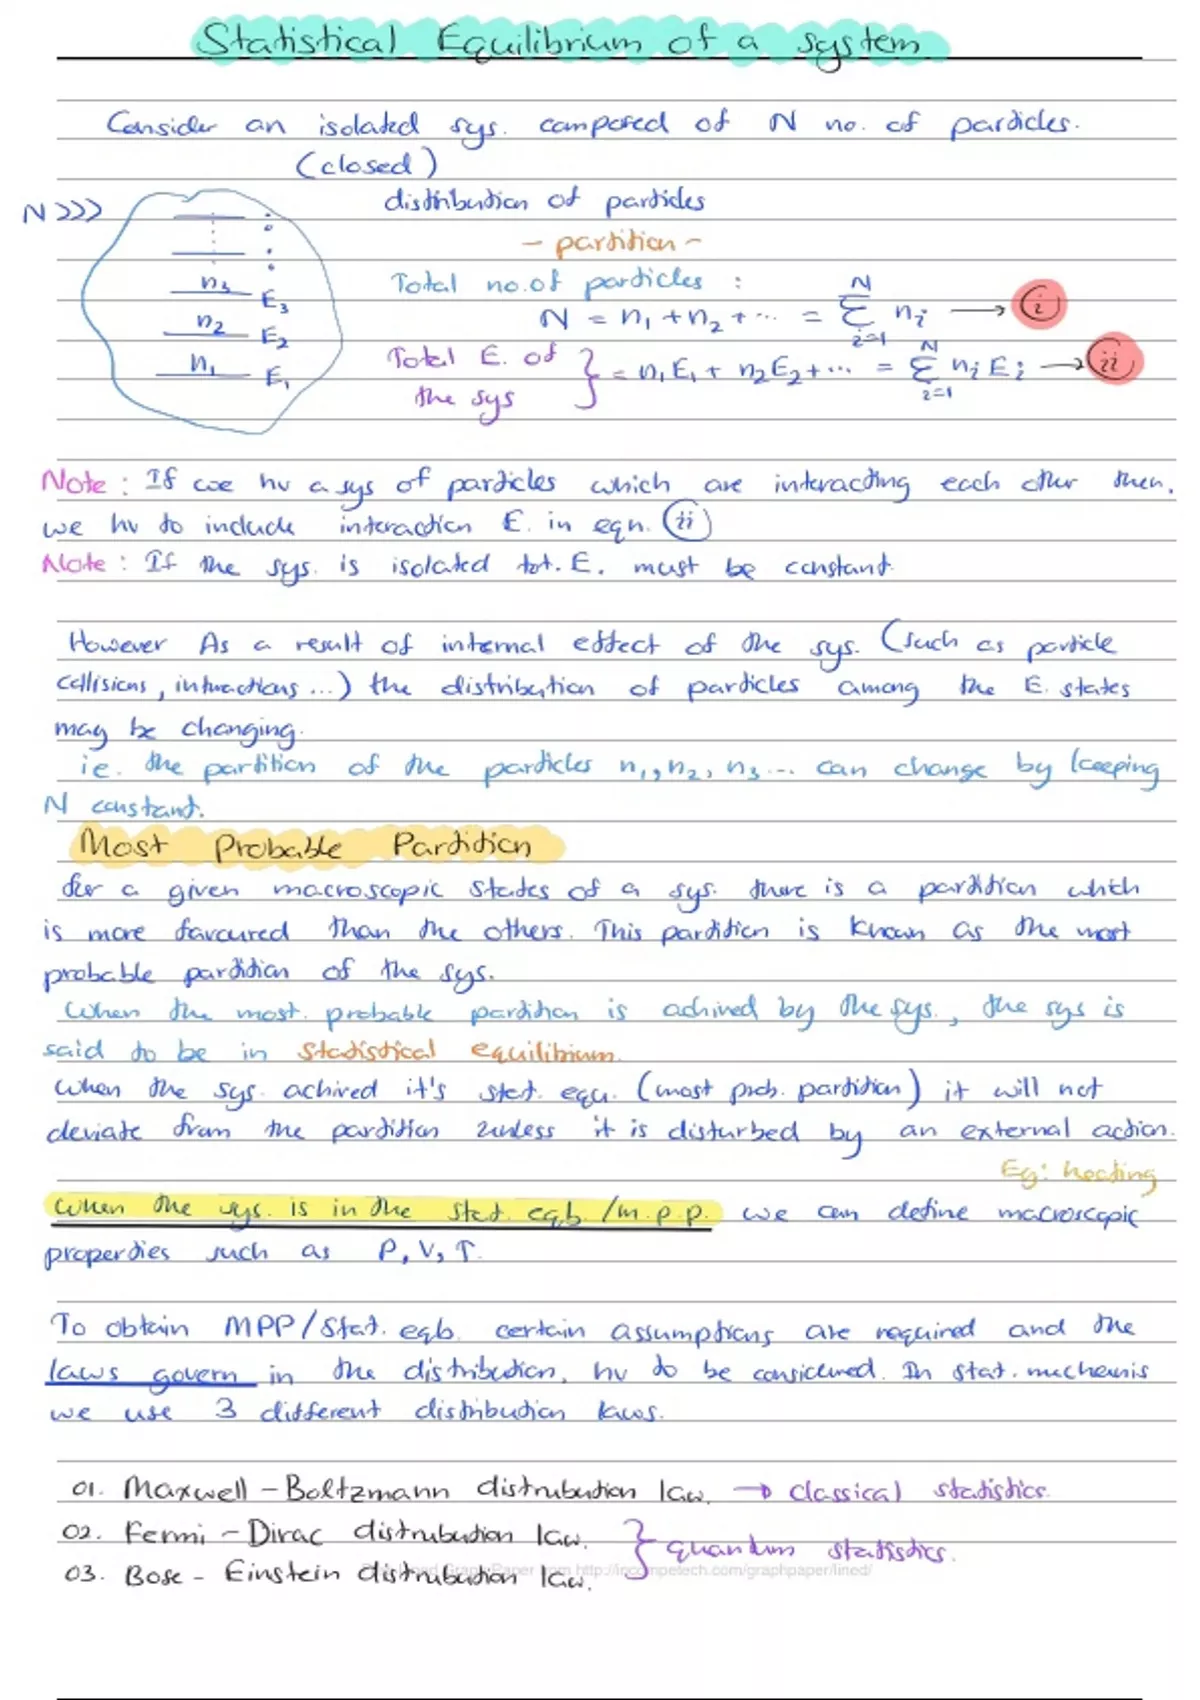 Statistical Equilibrium of a system
Consider an isolated sys. composed of N no. of particles.
(closed)
N >>>
distribution of particles
- partition -
n3 E3
n2 E2
n1 E1
Total no. of particles :
N = n1 + n2 + ... = N Σ i=1 ni → i
Total E. of the sys } = n1E1 + n2E2 + ... = N Σ i=1 ni Ei → ii
Note : If we hv a sys of particles which are interacting each other then,
we hv to include interaction E. in eqn. ii
Note : If the sys. is isolated tot. E. must be constant.
However As a result of internal effect of the sys. (such as particle
collisions, interactions ...) the distribution of particles among the E. states
may be changing.
ie. the partition of the particles n1, n2, n3 ... can change by keeping
N constant.
Most Probable Partition
for a given macroscopic states of a sys. there is a partition which
is more favoured than the others. This partition is known as the most
probable partition of the sys.
When the most. probable partition is achived by the sys., the sys is
said to be in statistical equilibrium.
When the sys. achived it's stat. equ. (most prob. partition) it will not
deviate from the partition unless it is disturbed by an external action.
Eg: heating
When the sys. is in the stat. eqb. /m.p.p. we can define macroscopic
properties such as P, V, T.
To obtain MPP/Stat. eqb. certain assumptions are required and the
laws govern in the distribution, hv to be considered. In stat. mechanis
we use 3 different distribution laws.
01. Maxwell - Boltzmann distrubution law. → classical statistics.
02. Fermi - Dirac distrubution law.
} quantum statistics.
03. Bose - Einstein distrubution law.
GraphPaper from http://incompetech.com/graphpaper/lined/